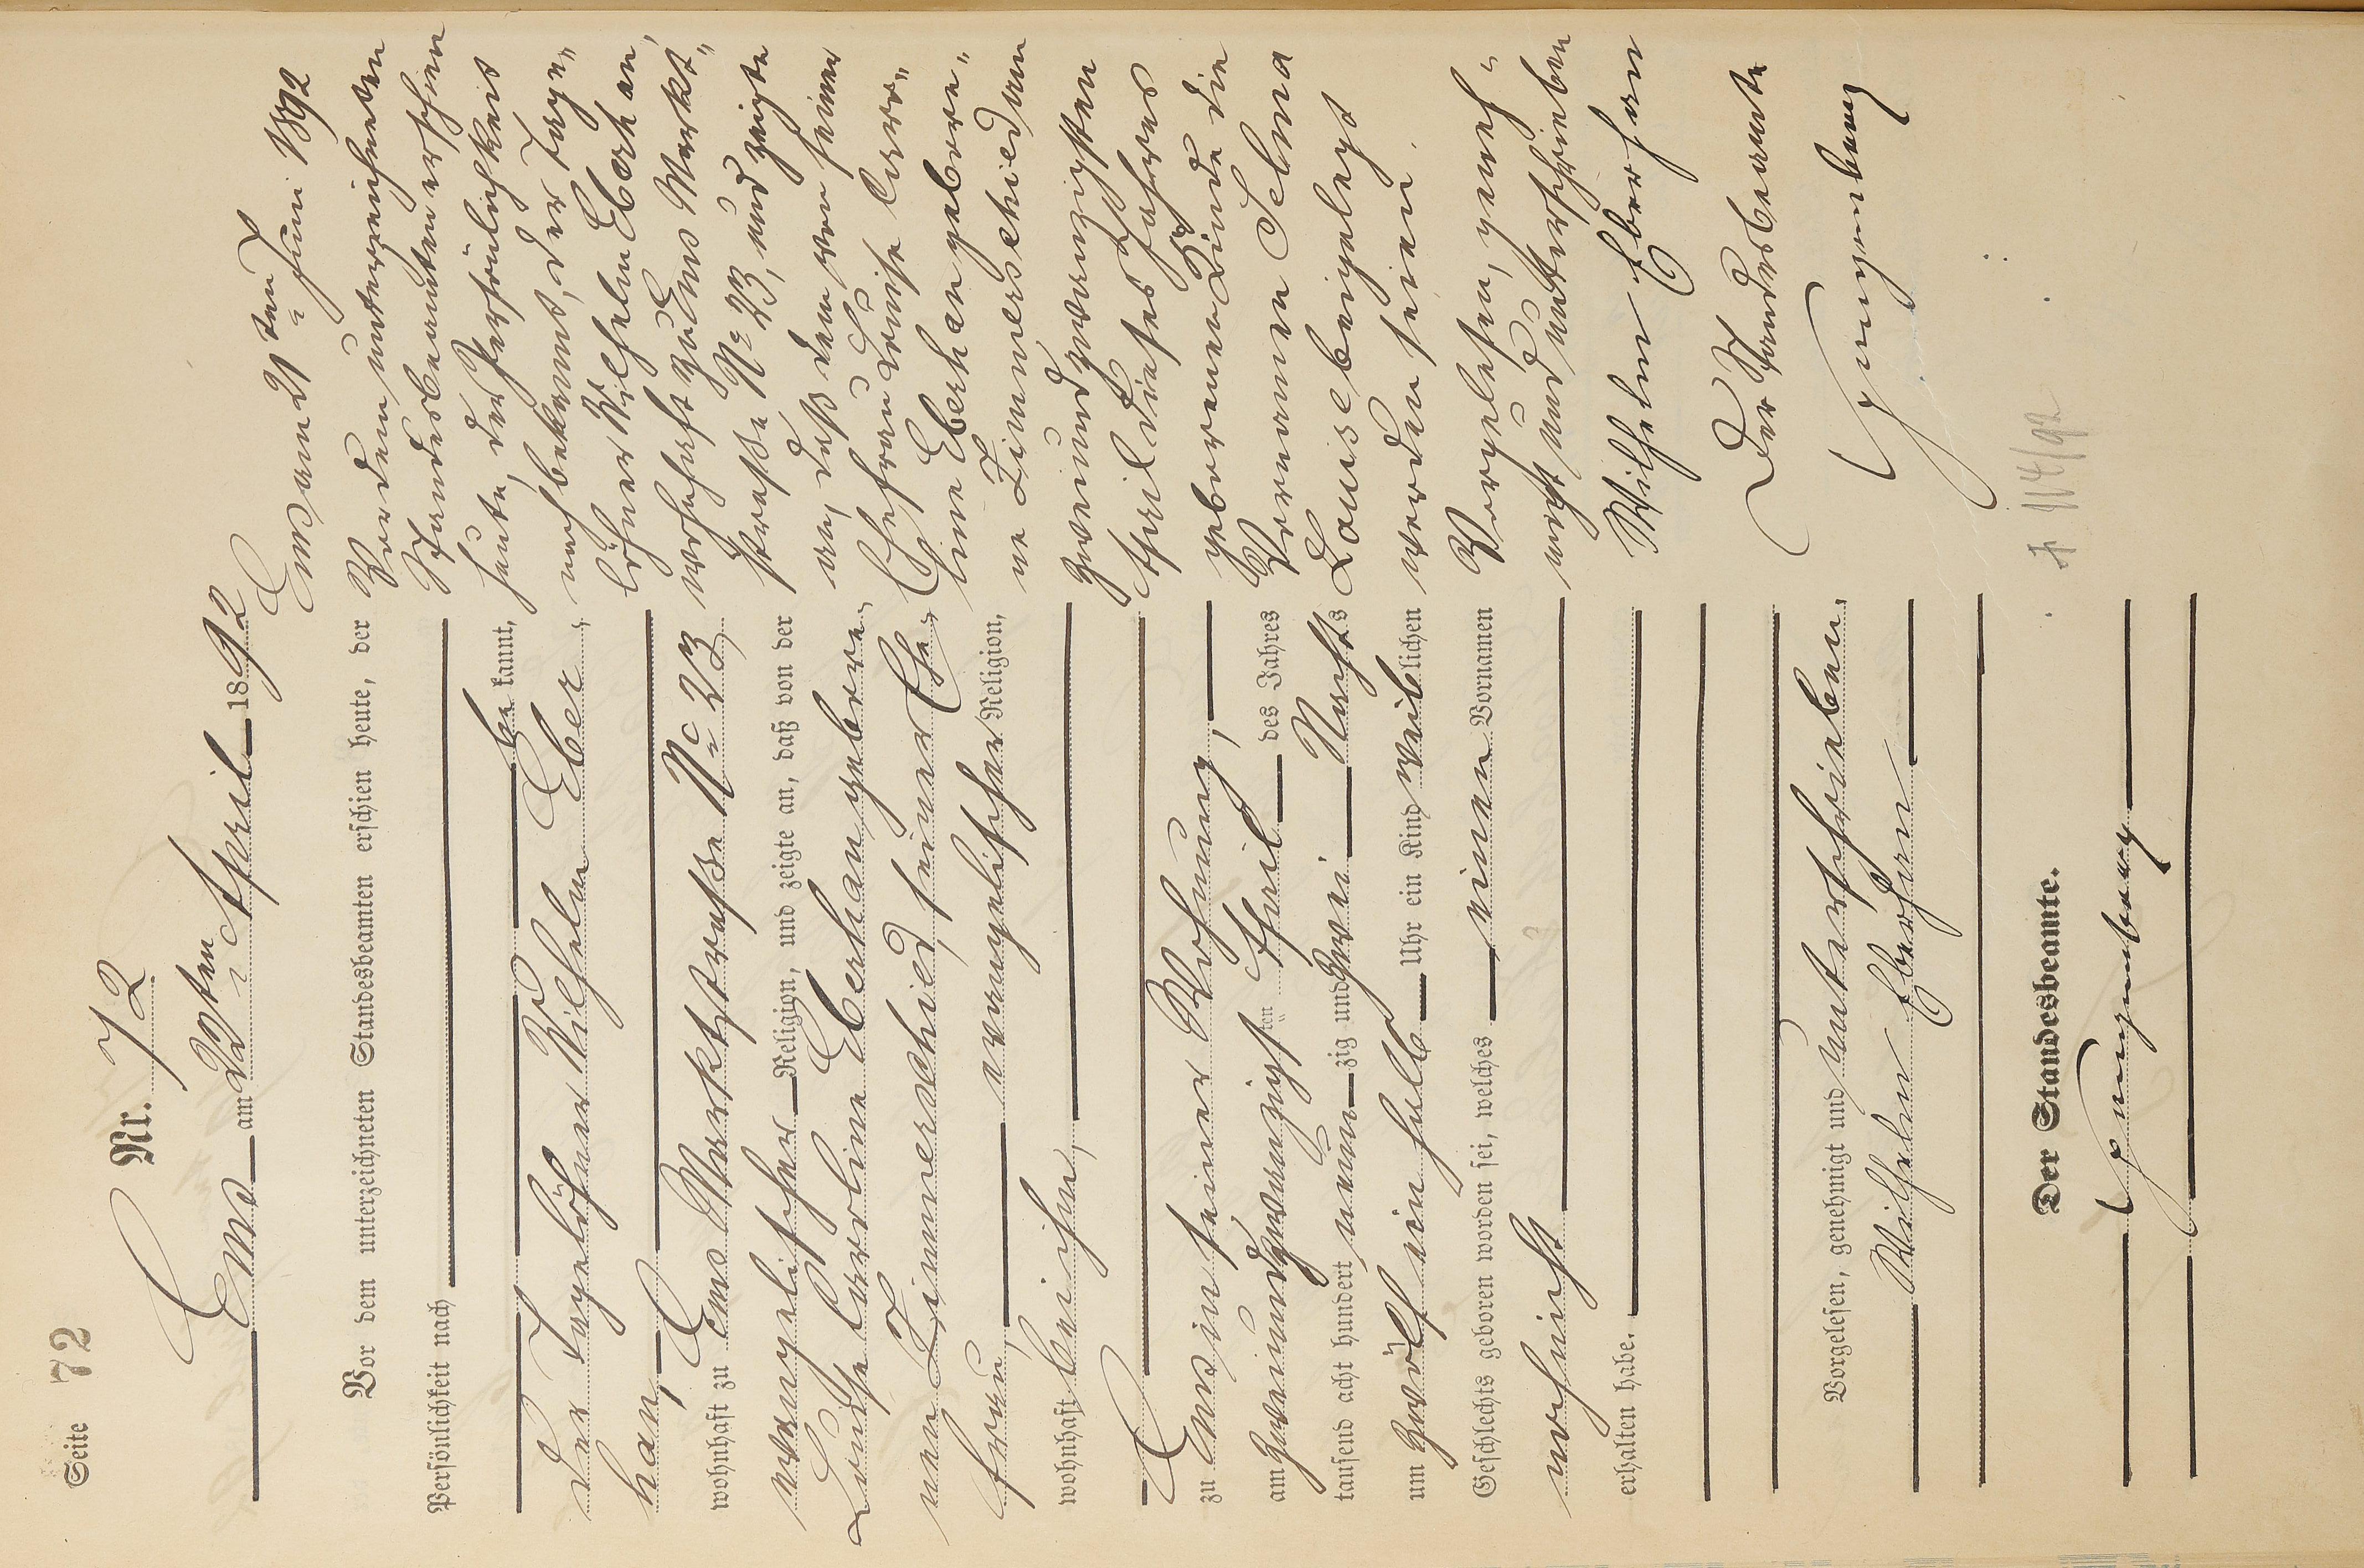 Seite 72
Nr. 72
Ems am 23ten April 1892
Vor dem unterzeichneten Standesbeamten erschien heute, der
Persönlichkeit nach
be kannt,
der Tagelöhner Wilhelm Eber„
han,
wohnhaft zu Ems Marktstraße No 23
evangelischer Religion, und zeigte an, daß von der
Louise Caroline Eberhan gebore„
nen Zimmerschied, seiner Ehe„
frau, evangelischer Religion,
wohnhaft bei ihm,
zu Ems in seiner Wohnung,
am zweiundzwanzigsten April des Jahres
tausend acht hundert neunzig und zwei Nachts
um zwölf ein halb Uhr ein Kind weiblichen
Geschlechts geboren worden sei, welches einen Vornamen
noch nicht
erhalten habe.
Vorgelesen, genehmigt und unterschrieben
Wilhelm Eberhan
Der Standesbeamte.
Ems am 21ten Juni 1892
Vor dem unterzeichneten
Standesbeamten erschien
heute, der Persönlichkeit
nach bekannt, der Tage„
löhner Wilhelm Eberhan,
wohnhaft zu Ems Markt„
straße No 23, und zeigte
an, daß dem von seiner
Ehefrau Louise Caro„
line Eberhan gebore„
ne Zimmerschied am
zweiundzwanzigsten
April dieses Jahres
geborenen Kinde die
Vornamen Selma
Louise beigelegt
worden seien.
Vorgelesen, geneh„
migt und unterschrieben
Wilhelm Eberhan
Der Standesbeamte